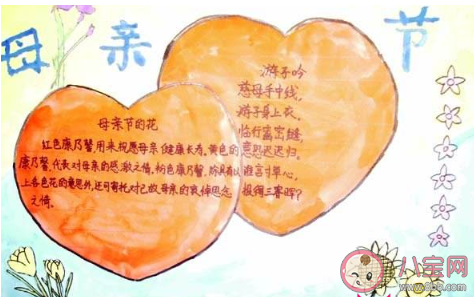 母亲节
母亲节的花
红色康乃馨,用来祝愿母亲健康长寿。黄色的
康乃馨,代表对母亲的感激之情。粉色康乃馨,除具有以
上各色花的意思外,还可寄托对已故母亲的哀悼思念
之情。
游子吟
慈母手中线,
游子身上衣。
临行密密缝,
意恐迟迟归。
谁言寸草心,
报得三春晖?
八宝网